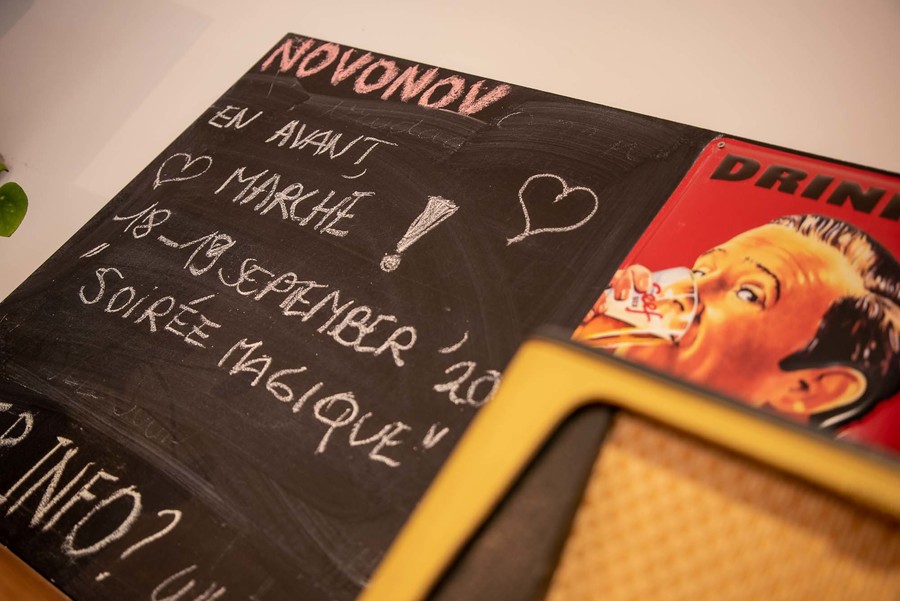 NOVONOV
EN AVANT
MARCHE !
18-19 SEPTEMBER '20
"SOIRÉE MAGIQUE"
INFO?
DRIN